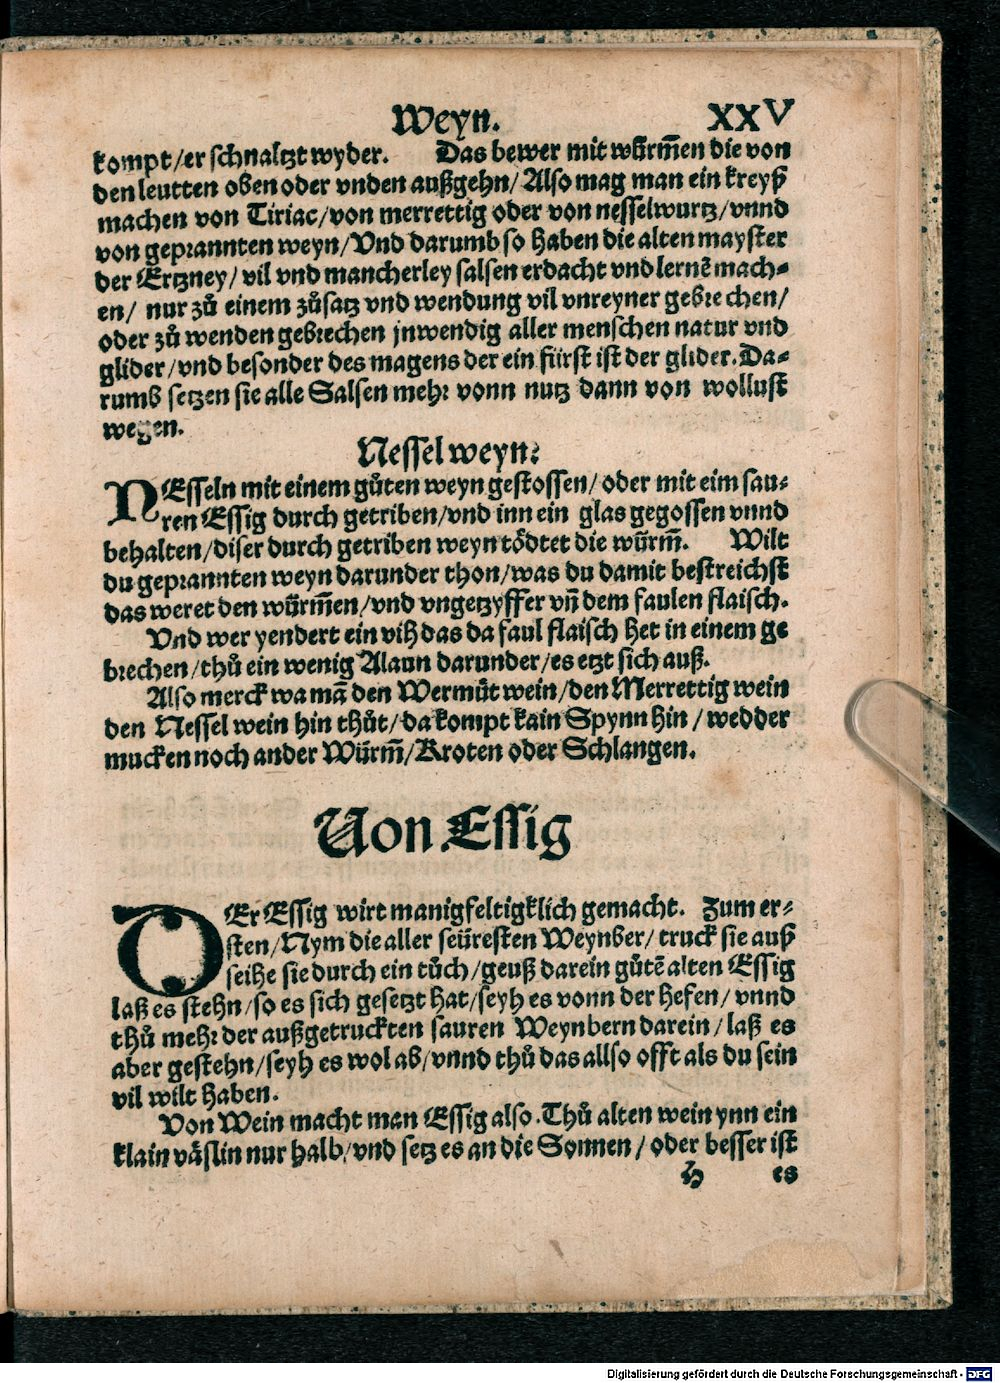 Weyn. XXV
kompt/er schnaltzt wyder. Das bewer mit würm̄en die von
den leutten oben oder vnden außgehn/Also mag man ein kreyß
machen von Tiriac/von merrettig oder von nesselwurtz/vnnd
von geprannten weyn/Vnd darumb so haben die alten mayster
der Ertzney/vil vnd mancherley salsen erdacht vnd lernē mach-
en/ nur zů einem zůsatz vnd wendung vil vnreyner gebrechen/
oder zů wenden gebrechen jnwendig aller menschen natur vnd
glider/vnd besonder des magens der ein fürst ist der glider. Da-
rumb setzen sie alle Salsen mehr vonn nutz dann von wollust
wegen.
Nessel weyn.
NEsseln mit einem gůten weyn gestossen/oder mit eim sau-
ren Essig durch getriben/vnd inn ein glas gegossen vnnd
behalten/diser durch getriben weyn tödtet die würm̄. Wilt
du geprannten weyn darunder thon/was du damit bestreichst
das weret den würm̄en/vnd vngetzyffer vn̄ dem faulen flaisch.
Vnd wer yendert ein vih das da faul flaisch het in einem ge
brechen/thů ein wenig Alaun darunder/es etzt sich auß.
Also merck wa mā den Wermůt wein/den Merrettig wein
den Nessel wein hin thůt/da kompt kain Spynn hin/wedder
mucken noch ander Würm̄/Kroten oder Schlangen.
Von Essig
DEr Essig wirt manigfeltigklich gemacht. Zum er-
sten/Nym die aller seüresten Weynber/truck sie auß
seihe sie durch ein tůch/geuß darein gůtē alten Essig
laß es stehn/so es sich gesetzt hat/seyh es vonn der hefen/vnnd
thů mehr der außgetruckten sauren Weynbern darein/laß es
aber gestehn/seyh es wol ab/vnnd thů das allso offt als du sein
vil wilt haben.
Von Wein macht man Essig also. Thů alten wein ynn ein
klain väslin nur halb/vnd setz es an die Sonnen/oder besser ist
h es
Digitalisierung gefördert durch die Deutsche Forschungsgemeinschaft - DFG